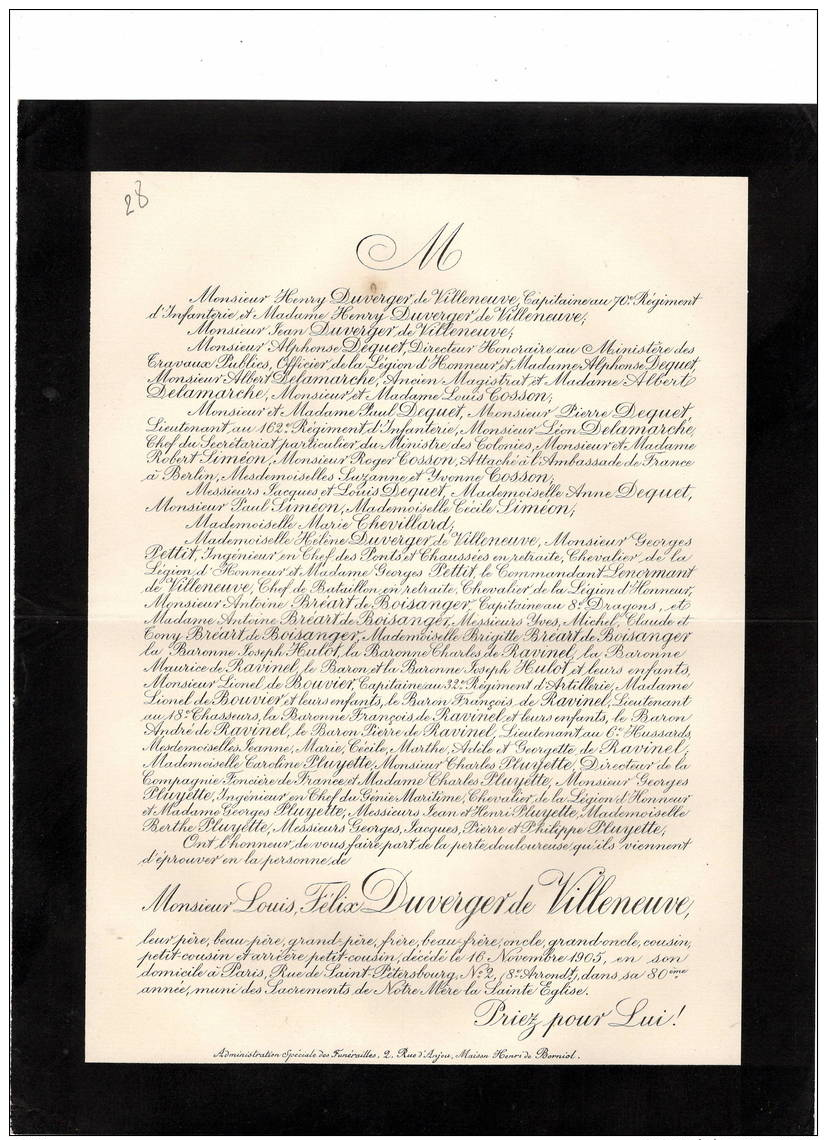 28
M
Monsieur Henry Duverger de Villeneuve, Capitaine au 70e Régiment
d'Infanterie et Madame Henry Duverger de Villeneuve;
Monsieur Jean Duverger de Villeneuve;
Monsieur Alphonse Dequet, Directeur Honoraire au Ministère des
Travaux Publics, Officier de la Légion d'Honneur et Madame Alphonse Dequet,
Monsieur Albert Delamarche, Ancien Magistrat et Madame Albert
Delamarche, Monsieur et Madame Louis Cosson;
Monsieur et Madame Paul Dequet, Monsieur Pierre Dequet,
Lieutenant au 162e Régiment d'Infanterie, Monsieur Léon Delamarche,
Chef du Secrétariat particulier du Ministre des Colonies, Monsieur et Madame
Robert Siméon, Monsieur Roger Cosson, Attaché à l'Ambassade de France
à Berlin, Mesdemoiselles Suzanne et Yvonne Cosson;
Messieurs Jacques et Louis Dequet, Mademoiselle Anne Dequet,
Monsieur Paul Siméon, Mademoiselle Cécile Siméon;
Mademoiselle Marie Chevillard;
Mademoiselle Hélène Duverger de Villeneuve, Monsieur Georges
Pettit, Ingénieur en Chef des Ponts et Chaussées en retraite, Chevalier de la
Légion d'Honneur et Madame Georges Pettit, le Commandant Lenormant
de Villeneuve, Chef de Bataillon en retraite, Chevalier de la Légion d'Honneur,
Monsieur Antoine Bréart de Boisanger, Capitaine au 8e Dragons, et
Madame Antoine Bréart de Boisanger, Messieurs Yves, Michel, Claude et
Tony Bréart de Boisanger, Mademoiselle Brigitte Bréart de Boisanger
la Baronne Joseph Hulot, la Baronne Charles de Ravinel, la Baronne
Maurice de Ravinel, le Baron et la Baronne Joseph Hulot et leurs enfants,
Monsieur Lionel de Bouvier, Capitaine au 32e Régiment d'Artillerie, Madame
Lionel de Bouvier et leurs enfants, le Baron François de Ravinel, Lieutenant
au 18e Chasseurs, la Baronne François de Ravinel et leurs enfants, le Baron
André de Ravinel, le Baron Pierre de Ravinel, Lieutenant au 6e Hussards,
Mesdemoiselles Jeanne, Marie, Cécile, Marthe, Adile et Georgette de Ravinel;
Mademoiselle Caroline Pluyette, Monsieur Charles Pluyette, Directeur de la
Compagnie Foncière de France et Madame Charles Pluyette, Monsieur Georges
Pluyette, Ingénieur en Chef du Génie Maritime, Chevalier de la Légion d'Honneur
et Madame Georges Pluyette, Messieurs Jean et Henri Pluyette, Mademoiselle
Berthe Pluyette, Messieurs Georges, Jacques, Pierre et Philippe Pluyette;
Ont l'honneur de vous faire part de la perte douloureuse qu'ils viennent
d'éprouver en la personne de
Monsieur Louis, Félix Duverger de Villeneuve,
leur père, beau-père, grand-père, frère, beau-frère, oncle, grand-oncle, cousin,
petit-cousin et arrière petit-cousin, décédé le 16 Novembre 1905, en son
domicile à Paris, Rue de Saint Pétersbourg, No 2, (8e Arrondt), dans sa 80ème
année, muni des Sacrements de Notre Mère la Sainte Eglise.
Priez pour Lui!
Administration Spéciale des Funérailles, 2, Rue d'Anjou, Maison Henri de Borniol.